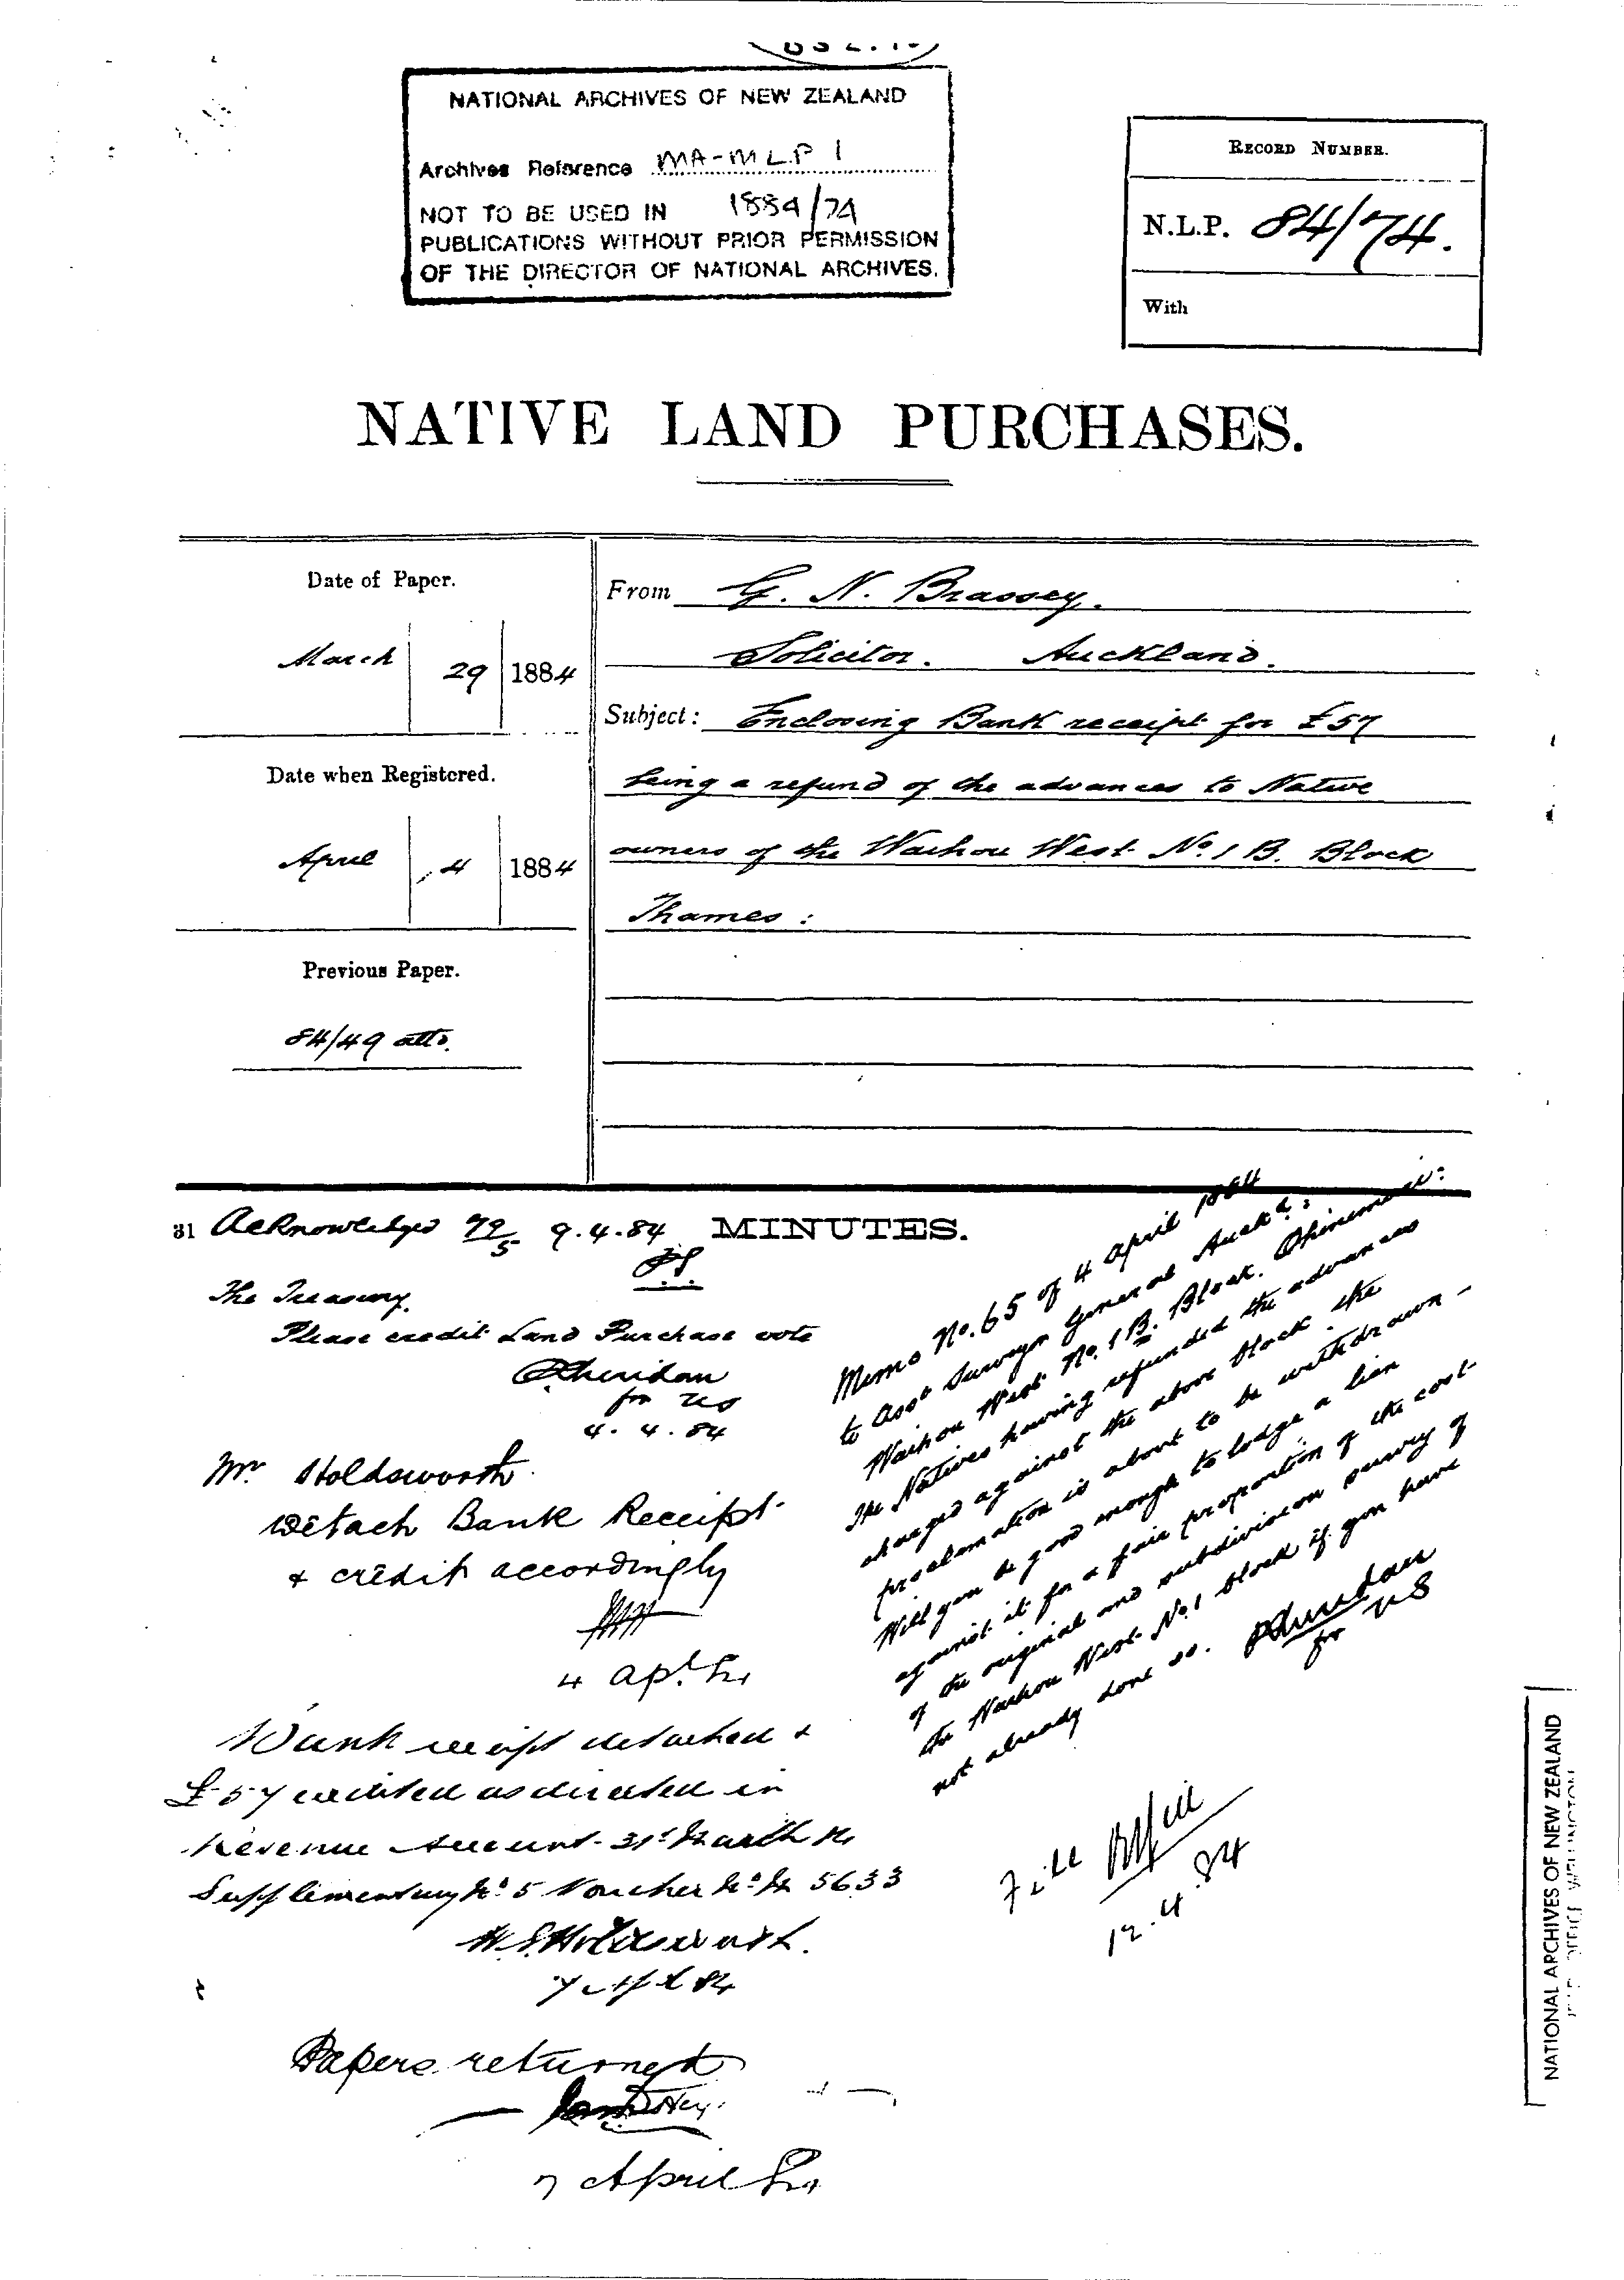 NATIONAL ARCHIVES OF NEW ZEALAND
Archives Reference MA-MLP 1
NOT TO BE USED IN 1884/74
PUBLICATIONS WITHOUT PRIOR PERMISSION
OF THE DIRECTOR OF NATIONAL ARCHIVES.
RECORD NUMBER.
N.L.P. 84/74.
With
NATIVE LAND PURCHASES.
Date of Paper.
March 29 1884
Date when Registered.
April 4 1884
Previous Paper.
84/49 atts.
From G. N. Brassey.
Solicitor. Auckland.
Subject: Enclosing Bank receipt for £57
being a refund of the advances to Native
owners of the Waihou West No. 1 B. Block
Thames:
31 Acknowledged 72/5 9.4.84 MINUTES.
The Treasury.
Please credit Land Purchase vote
PSheridan
for US
4.4.84
Mr Holdsworth
Detach Bank Receipt
& credit accordingly
4 Apl. 84
Bank receipt detached &
£57 credited as directed in
Revenue Account 31st March 84
Supplementary No 5 Voucher No 5633
W. S. Holdsworth.
7 Apl 84
Papers returned
7 April 84
Memo No. 65 of 4 April 1884
to Asst Surveyor General Auckd:
Waihou West No. 1 B. Block. Ohinemuri:
The Natives having refunded the advances
charged against the above block the
proclamation is about to be withdrawn -
Will you be good enough to lodge a lien
against it for a fair proportion of the cost
of the original and subdivision survey of
the Waihou West No. 1 block if you have
not already done so. PSheridan
for US
File
12.4.84
NATIONAL ARCHIVES OF NEW ZEALAND